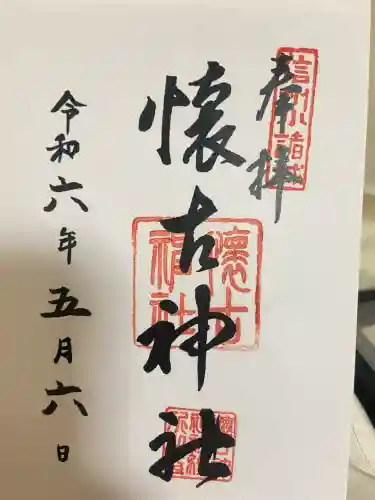 奉拝
信州小諸城
懐古神社
懐古神社
令和六年五月六日